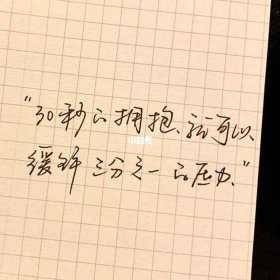 "30秒的拥抱、就可以
缓解三分之一的压力."
小红书